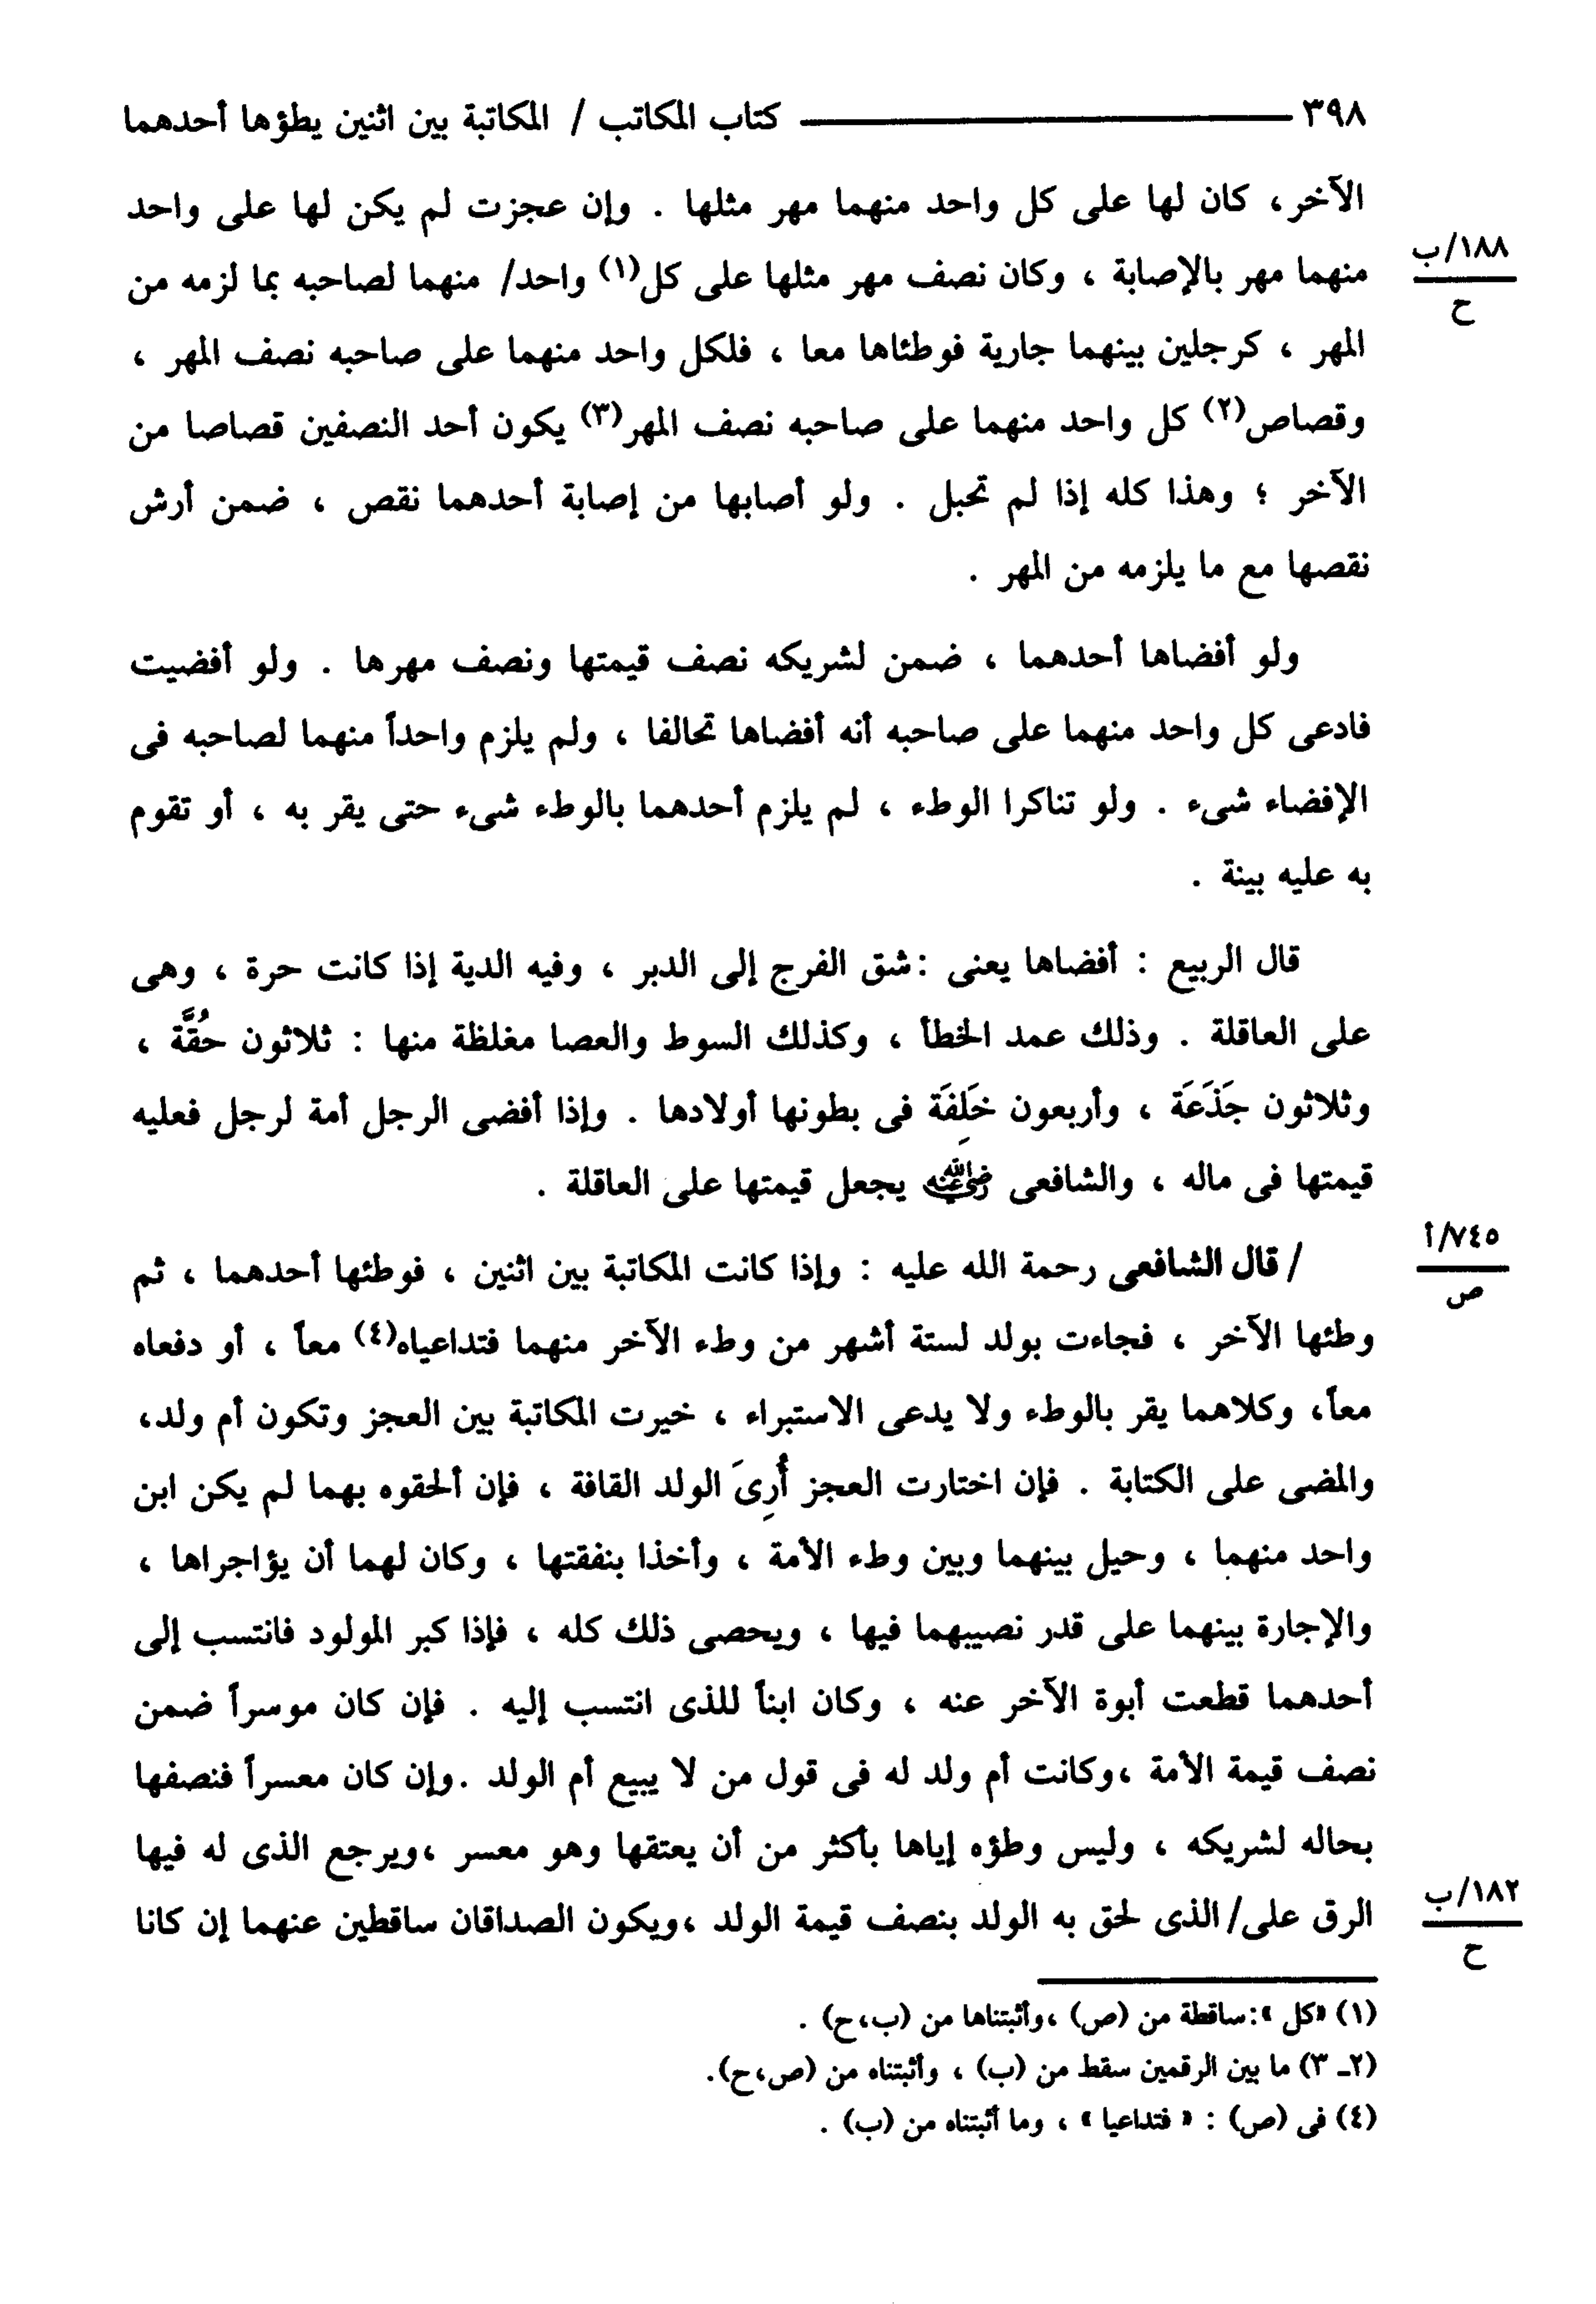 ٣٩٨ ــــــــ كتاب المكاتب / المكاتبة بين اثنين يطؤها أحدهما
الآخر، كان لها على كل واحد منهما مهر مثلها . وإن عجزت لم يكن لها على واحد
١٨٨/ب
ح
منهما مهر بالإصابة ، وكان نصف مهر مثلها على كل(١) واحد/ منهما لصاحبه بما لزمه من
المهر ، كرجلين بينهما جارية فوطئاها معا ، فلكل واحد منهما على صاحبه نصف المهر ،
وقصاص(٢) كل واحد منهما على صاحبه نصف المهر(٣) يكون أحد النصفين قصاصا من
الآخر ؛ وهذا كله إذا لم تحبل . ولو أصابها من إصابة أحدهما نقص ، ضمن أرش
نقصها مع ما يلزمه من المهر .
ولو أفضاها أحدهما ، ضمن لشريكه نصف قيمتها ونصف مهرها . ولو أفضيت
فادعى كل واحد منهما على صاحبه أنه أفضاها تحالفا ، ولم يلزم واحداً منهما لصاحبه فى
الإفضاء شىء . ولو تناكرا الوطء ، لم يلزم أحدهما بالوطء شىء حتى يقر به ، أو تقوم
به عليه بينة .
قال الربيع : أفضاها يعنى :شق الفرج إلى الدبر ، وفيه الدية إذا كانت حرة ، وهى
على العاقلة . وذلك عمد الخطأ ، وكذلك السوط والعصا مغلظة منها : ثلاثون حُقَّة ،
وثلاثون جَذَعَة ، وأربعون خَلِفَة فى بطونها أولادها . وإذا أفضى الرجل أمة لرجل فعليه
قيمتها فى ماله ، والشافعى رضي الله عنه يجعل قيمتها على العاقلة .
٧٤٥/أ
ص
/ قال الشافعى رحمة الله عليه : وإذا كانت المكاتبة بين اثنين ، فوطئها أحدهما ، ثم
وطئها الآخر ، فجاءت بولد لستة أشهر من وطء الآخر منهما فتداعياه(٤) معاً ، أو دفعاه
معاً، وكلاهما يقر بالوطء ولا يدعى الاستبراء ، خيرت المكاتبة بين العجز وتكون أم ولد،
والمضى على الكتابة . فإن اختارت العجز أُرِىَ الولد القافة ، فإن ألحقوه بهما لم يكن ابن
واحد منهما ، وحيل بينهما وبين وطء الأمة ، وأخذا بنفقتها ، وكان لهما أن يؤاجراها ،
والإجارة بينهما على قدر نصيبهما فيها ، ويحصى ذلك كله ، فإذا كبر المولود فانتسب إلى
أحدهما قطعت أبوة الآخر عنه ، وكان ابناً للذى انتسب إليه . فإن كان موسراً ضمن
نصف قيمة الأمة ،وكانت أم ولد له فى قول من لا يبيع أم الولد .وإن كان معسراً فنصفها
بحاله لشريكه ، وليس وطؤه إياها بأكثر من أن يعتقها وهو معسر ،ويرجع الذى له فيها
١٨٢/ب
ح
الرق على/ الذى لحق به الولد بنصف قيمة الولد ،ويكون الصداقان ساقطين عنهما إن كانا
(١) «كل »:ساقطة من (ص) ،وأثبتناها من (ب،ح) .
(٢ـ ٣) ما بين الرقمين سقط من (ب) ، وأثبتناه من (ص،ح).
(٤) فى (ص) : « فتداعيا » ، وما أثبتناه من (ب) .